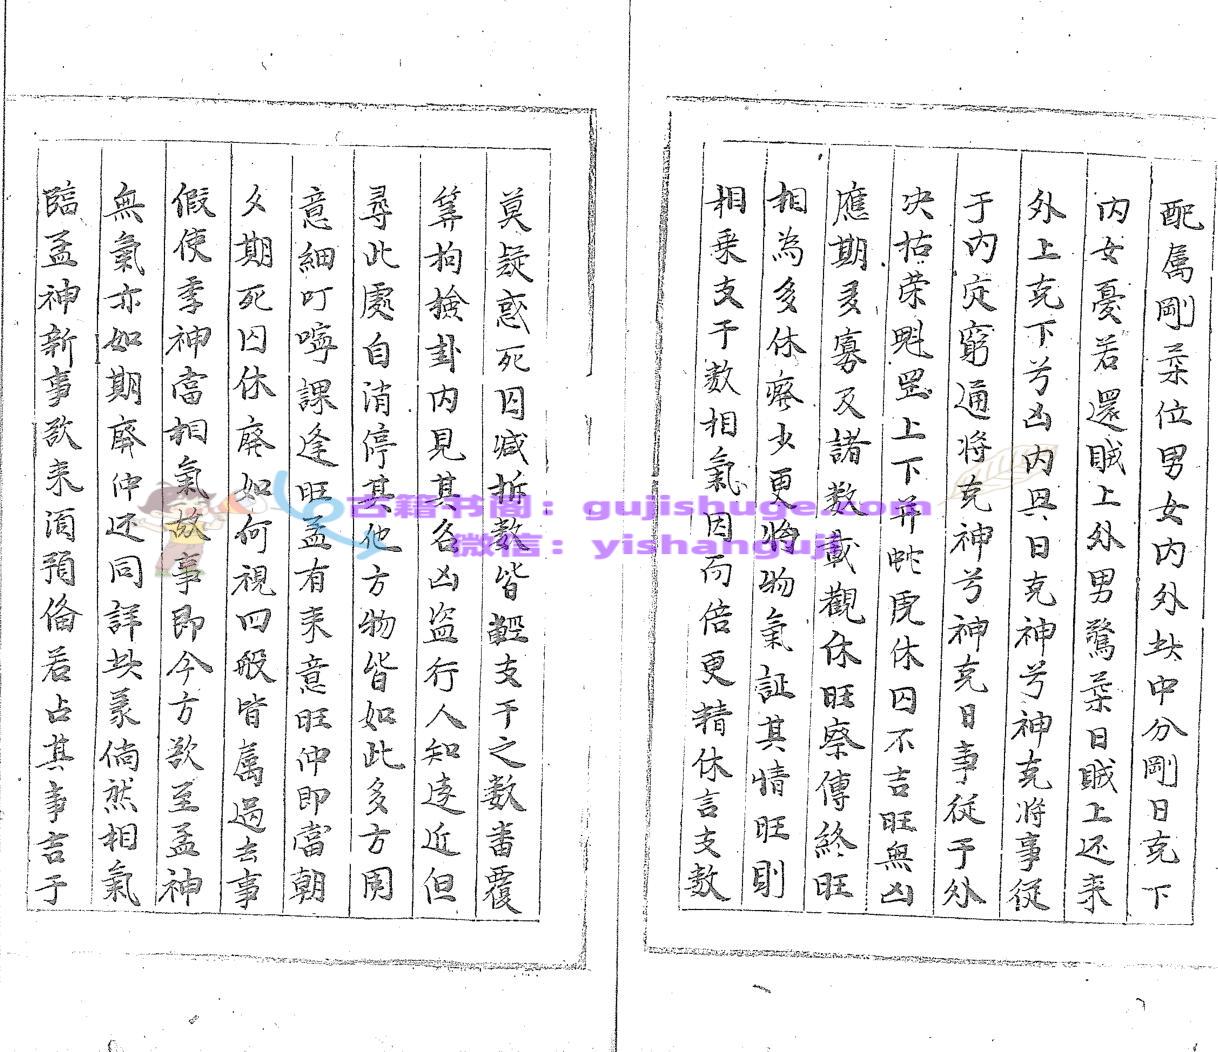 配属剛柔位男女内外於中分剛日克下
内女憂若還賊上外男驚柔日賊上还来
外上克下兮凶内與日克神兮神克将事從
于内定窮通将克神兮神克日事從于外
决枯荣魁罡上下并蛇虎休囚不吉旺無凶
應期多寡及諸数裁觀休旺察傳終旺
相為多休廢少更将物氣証其情旺則
相乗支干数相氣因而倍更精休言支数
莫疑惑死囚减折数皆輕支干之数畨覆
筭拘撿卦内見其名凶盜行人知逺近但
尋此處自消停其他方物皆如此多方用
意細叮嚀課逢旺孟有来意旺仲即當朝
夕期死囚休廢如何視四般皆属過去事
假使季神當相氣故事即今方欲至孟神
無氣亦如期廢仲还同詳於彖倘然相氣
臨孟神新事欲来湏預俻若占其事吉于
古籍书阁：gujishuge.com
微信：yishanguji